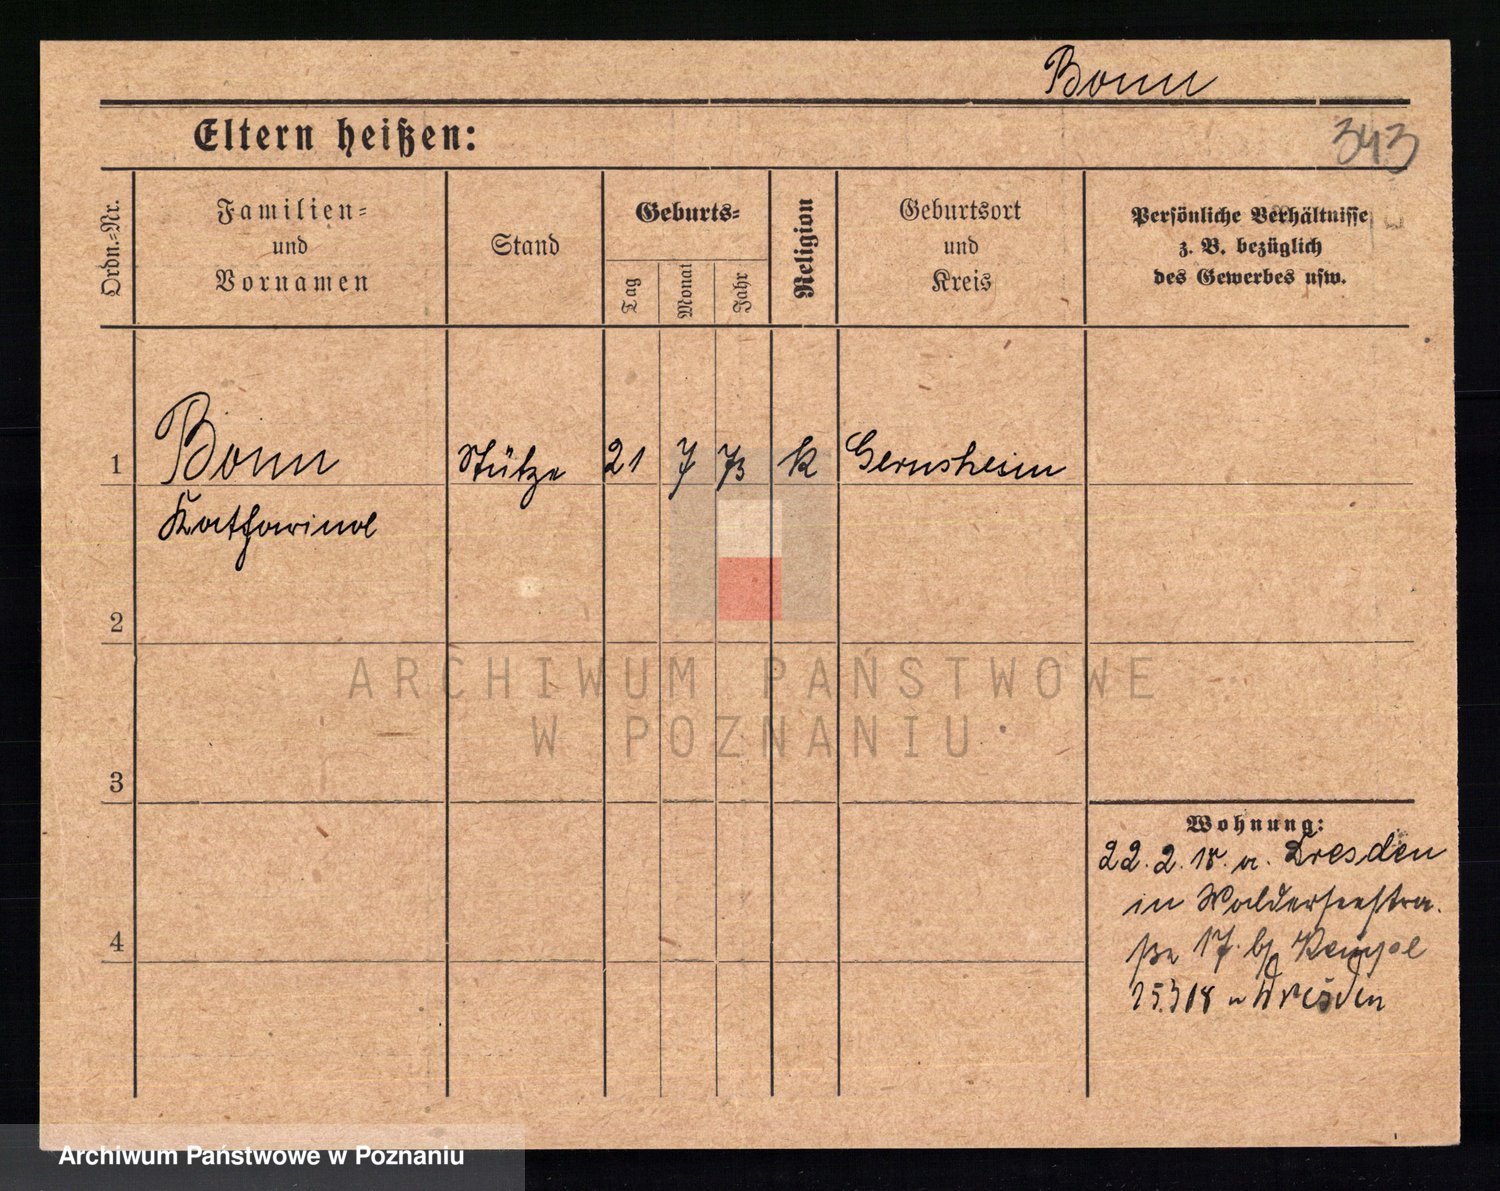 Bonn
Eltern heißen:
343
Ordn.-Nr.
Familien-
und
Vornamen
Stand
Geburts-
Tag
Monat
Jahr
Religion
Geburtsort
und
Kreis
Persönliche Verhältnisse
z. B. bezüglich
des Gewerbes usw.
1
Bonn
Stütze
21
7
73
k
Gernsheim
Katharina
2
ARCHIWUM PAŃSTWOWE
W POZNANIU
3
Wohnung:
22.2.18. a. Dresden
in Walderseestra.
4
ße 17. b/
25.3 18 n Dresden
Archiwum Państwowe w Poznaniu